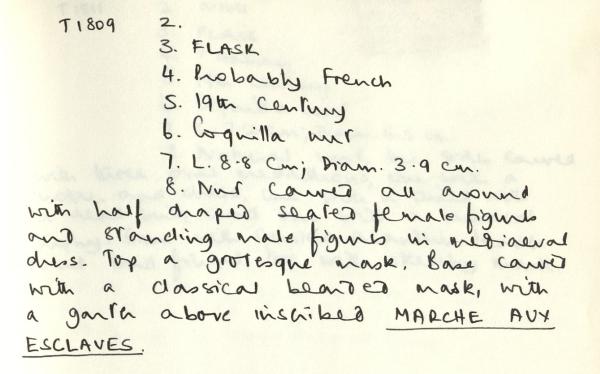 T1809 2.
3. FLASK
4. Probably French
5. 19th Century
6. Coquilla nut
7. L: 8.8 Cm; Diam. 3.9 cm.
8. Nut carved all around
with half draped seated female figures
and standing male figures in mediaeval
dress. Top a grotesque mask. Base carved
with a classical bearded mask, with
a garter above inscribed MARCHE AUX
ESCLAVES.